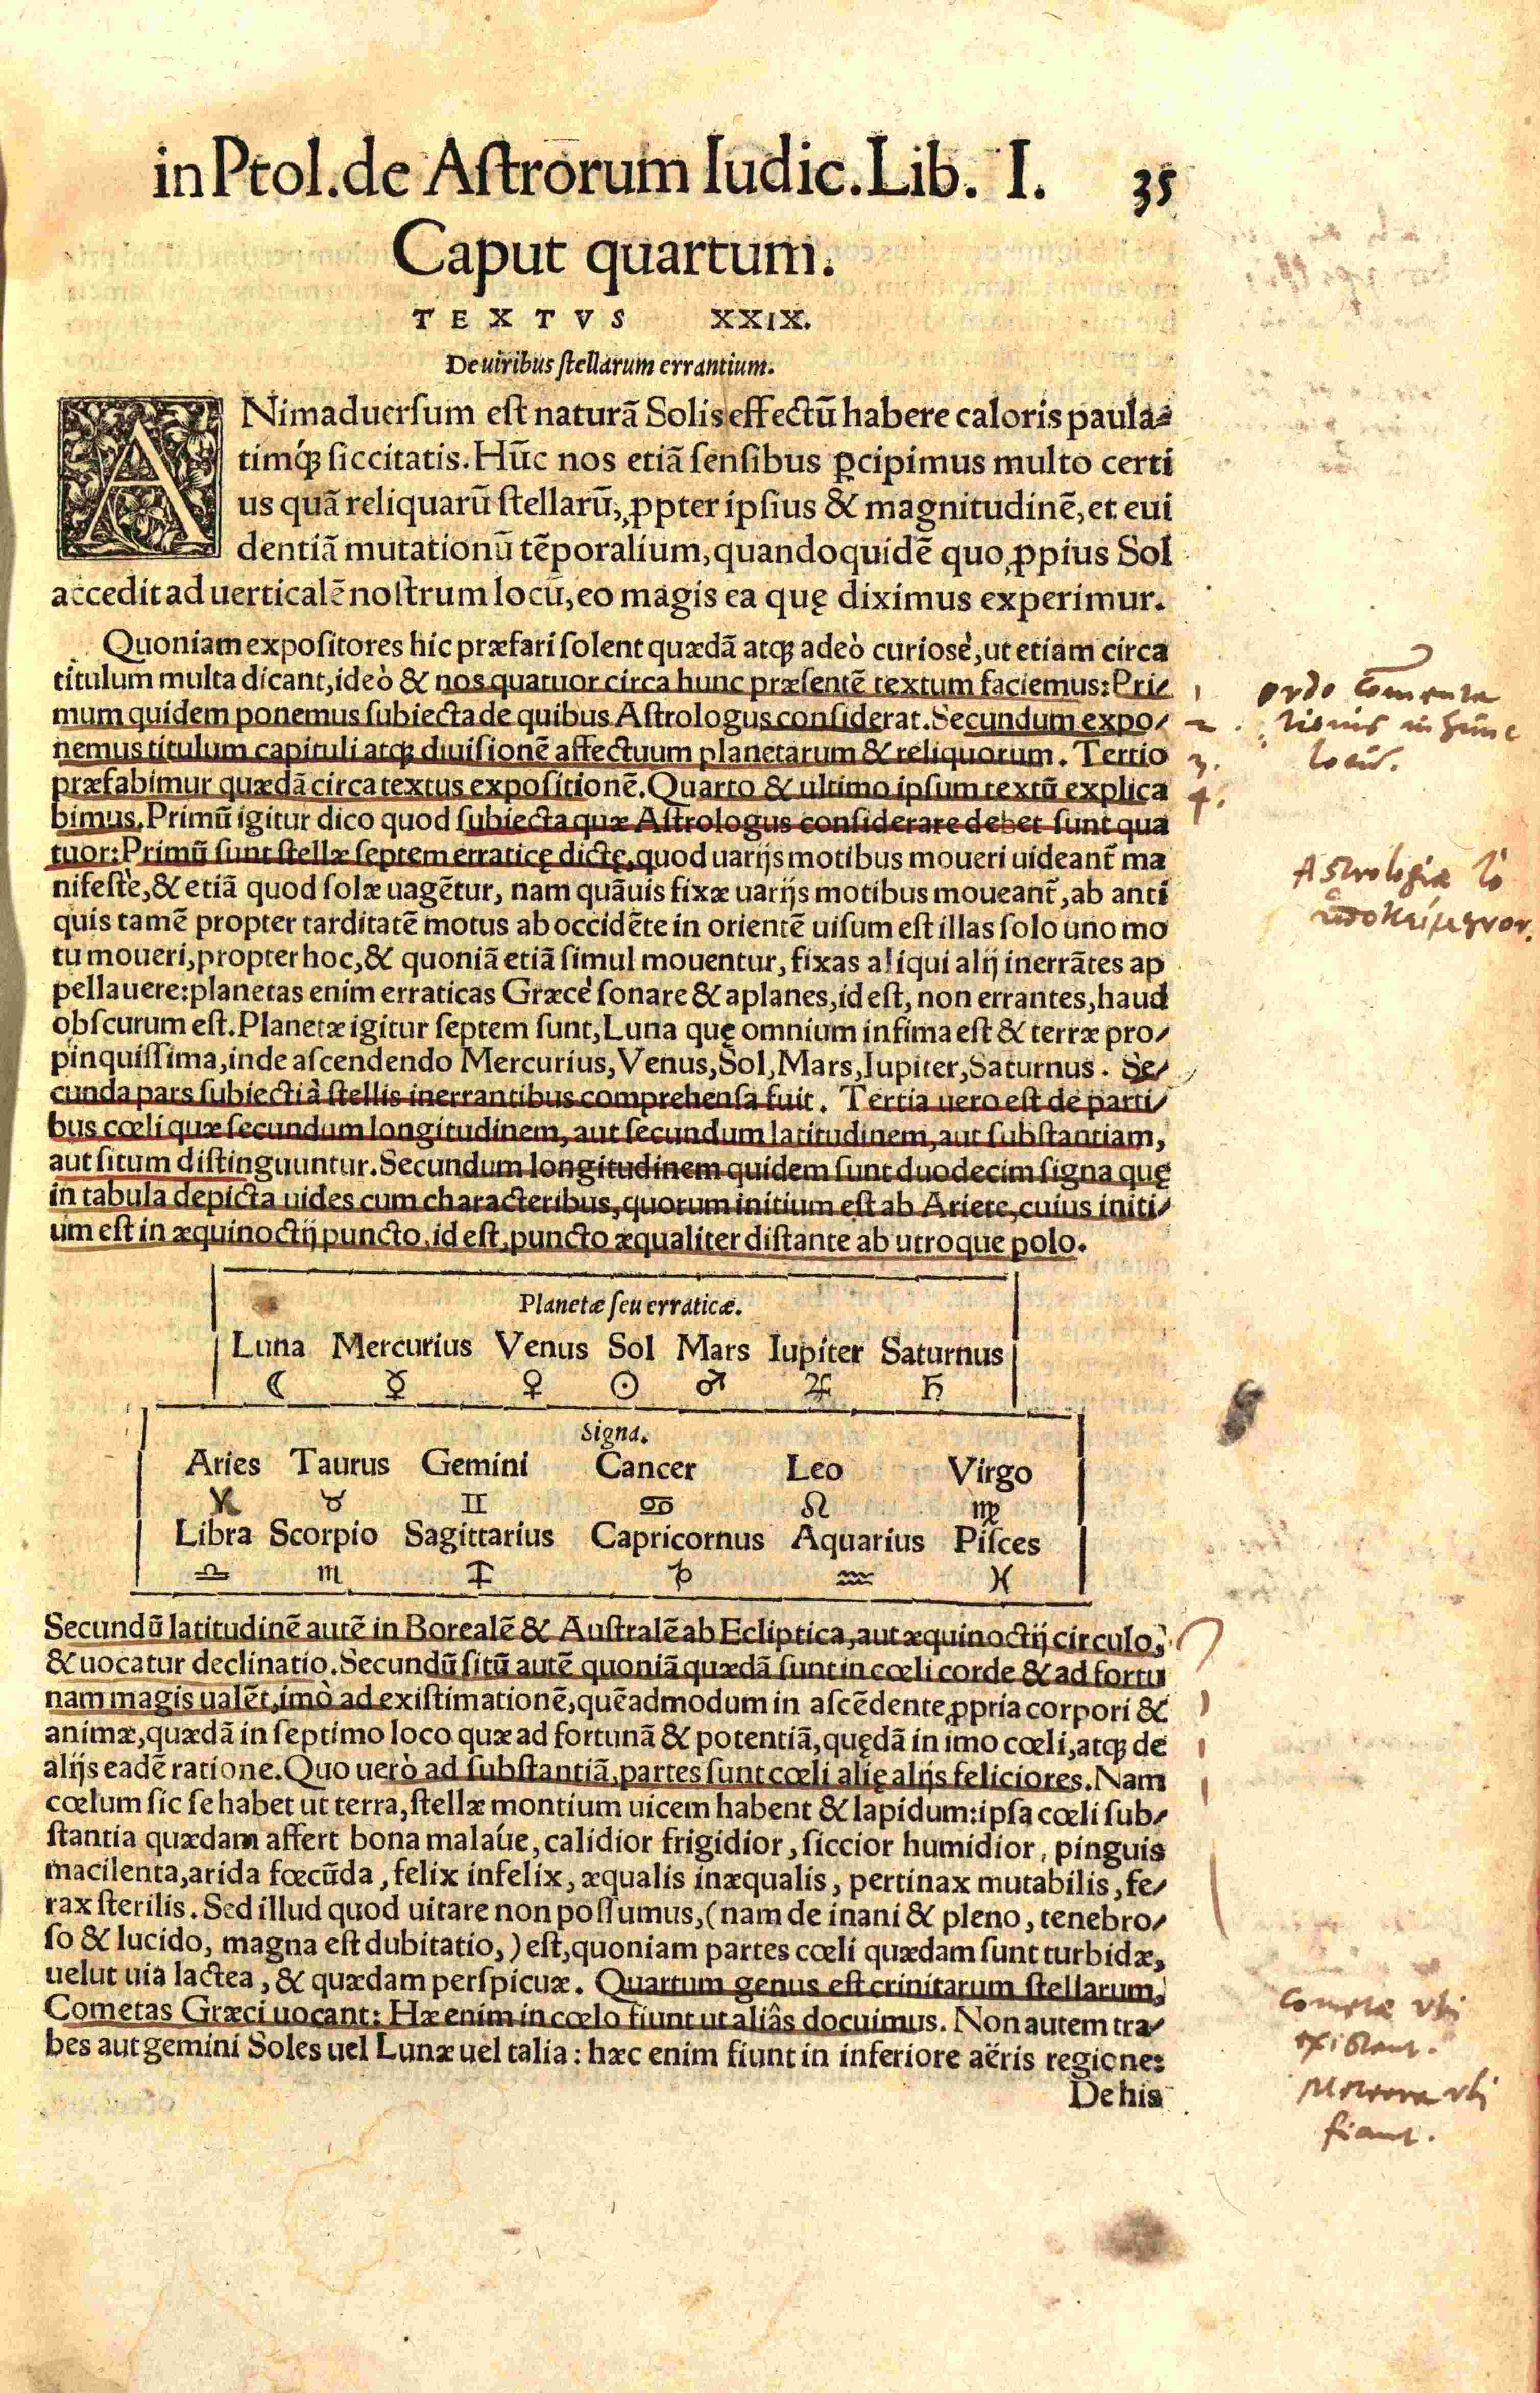 in Ptol. de Astrorum Iudic. Lib. I. 35
Caput quartum.
TEXTVS XXIX.
De uiribus stellarum errantium.
ANimaduersum est naturã Solis effectũ habere caloris paula-
timq́ꝫ siccitatis. Hũc nos etiã sensibus ꝑcipimus multo certi
us quã reliquarũ stellarũ, ꝓpter ipsius & magnitudinẽ, et eui
dentiã mutationũ tẽporalium, quandoquidẽ quo ꝓpius Sol
accedit ad uerticalẽ nostrum locũ, eo magis ea quę diximus experimur.
Quoniam expositores hic præfari solent quædã atqꝫ adeò curiosè, ut etiam circa
titulum multa dicant, ideò & nos quatuor circa hunc præsentẽ textum faciemus: Pri-
mum quidem ponemus subiecta de quibus Astrologus considerat. Secundum expo-
nemus titulum capituli atqꝫ diuisionẽ affectuum planetarum & reliquorum. Tertio
præfabimur quædã circa textus expositionẽ. Quarto & ultimo ipsum textũ explica
bimus. Primũ igitur dico quod subiecta quæ Astrologus considerare debet sunt qua
tuor: Primũ sunt stellæ septem erraticę dictę, quod uarijs motibus moueri uideant̃ ma
nifestè, & etiã quod solæ uagẽtur, nam quãuis fixæ uarijs motibus moueant̃, ab anti
quis tamẽ propter tarditatẽ motus ab occidẽte in orientẽ uisum est illas solo uno mo
tu moueri, propter hoc, & quoniã etiã simul mouentur, fixas aliqui alij inerrãtes ap
pellauere: planetas enim erraticas Græcè sonare & aplanes, id est, non errantes, haud
obscurum est. Planetæ igitur septem sunt, Luna quę omnium infima est & terræ pro-
pinquissima, inde ascendendo Mercurius, Venus, Sol, Mars, Iupiter, Saturnus. Se-
cunda pars subiecti à stellis inerrantibus comprehensa fuit. Tertia uero est de parti-
bus cœli quæ secundum longitudinem, aut secundum latitudinem, aut substantiam,
aut situm distinguuntur. Secundum longitudinem quidem sunt duodecim signa quę
in tabula depicta uides cum characteribus, quorum initium est ab Ariete, cuius initi-
um est in æquinoctij puncto, id est, puncto æqualiter distante ab utroque polo.
Planetæ seu erraticæ.
Luna Mercurius Venus Sol Mars Iupiter Saturnus
☾ ☿ ♀ ☉ ♂ ♃ ♄
Signa.
Aries Taurus Gemini Cancer Leo Virgo
♈ ♉ ♊ ♋ ♌ ♍
Libra Scorpio Sagittarius Capricornus Aquarius Pisces
♎ ♏ ♐ ♑ ♒ ♓
Secundũ latitudinẽ autẽ in Borealẽ & Australẽ ab Ecliptica, aut æquinoctij circulo,
& uocatur declinatio. Secundũ sitũ autẽ quoniã quædã sunt in cœli corde & ad fortu
nam magis ualẽt, imò ad existimationẽ, quẽadmodum in ascẽdente ꝓpria corpori &
animæ, quædã in septimo loco quæ ad fortunã & potentiã, quędã in imo cœli, atqꝫ de
alijs eadẽ ratione. Quo uerò ad substantiã, partes sunt cœli alię alijs feliciores. Nam
cœlum sic se habet ut terra, stellæ montium uicem habent & lapidum: ipsa cœli sub-
stantia quædam affert bona malaúe, calidior frigidior, siccior humidior, pinguis
macilenta, arida fœcũda, felix infelix, æqualis inæqualis, pertinax mutabilis, fe-
rax sterilis. Sed illud quod uitare non possumus, (nam de inani & pleno, tenebro-
so & lucido, magna est dubitatio,) est, quoniam partes cœli quædam sunt turbidæ,
uelut uia lactea, & quædam perspicuæ. Quartum genus est crinitarum stellarum,
Cometas Græci uocant: Hæ enim in cœlo fiunt ut aliâs docuimus. Non autem tra-
bes aut gemini Soles uel Lunæ uel talia: hæc enim fiunt in inferiore aëris regione:
De his
1
2.
3.
4.
ordo commenta
tionis in hunc
locũ.
Astrologiæ τὸ
ὑποκείμενον.
Cometæ vbi
existant.
vbi
fiant.